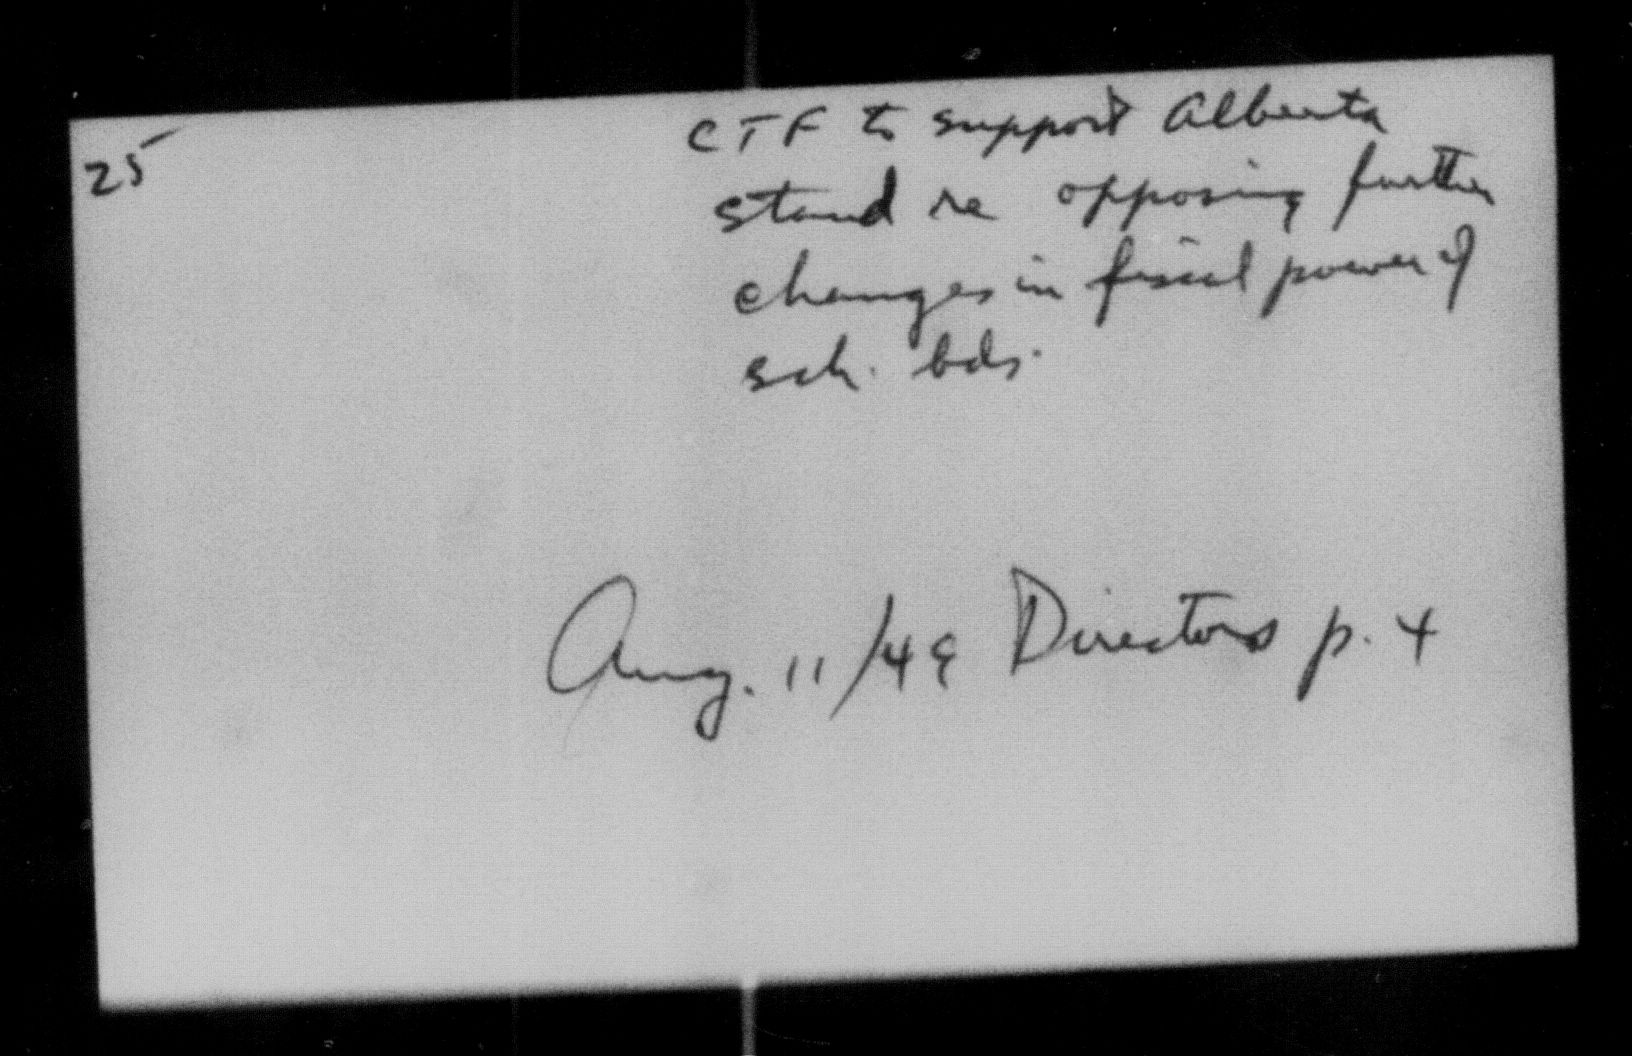 25
CTF to support Alberta
stand re opposing further
changes in fiscal power of
sch. bds.
Aug. 11/49 Directors p. 4